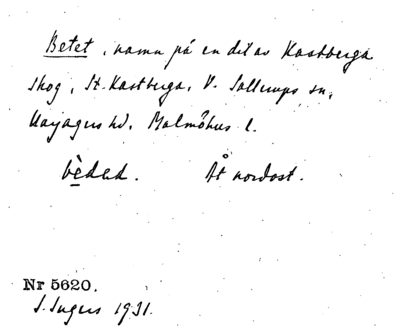 Betet, namn på en del av Kastberga
skog, St. Kastberga, V. Sallerups sn,
Harjagers hd, Malmöhus l.
bèdad. Åt nordost.
Nr 5620.
S. Ingers 1931.